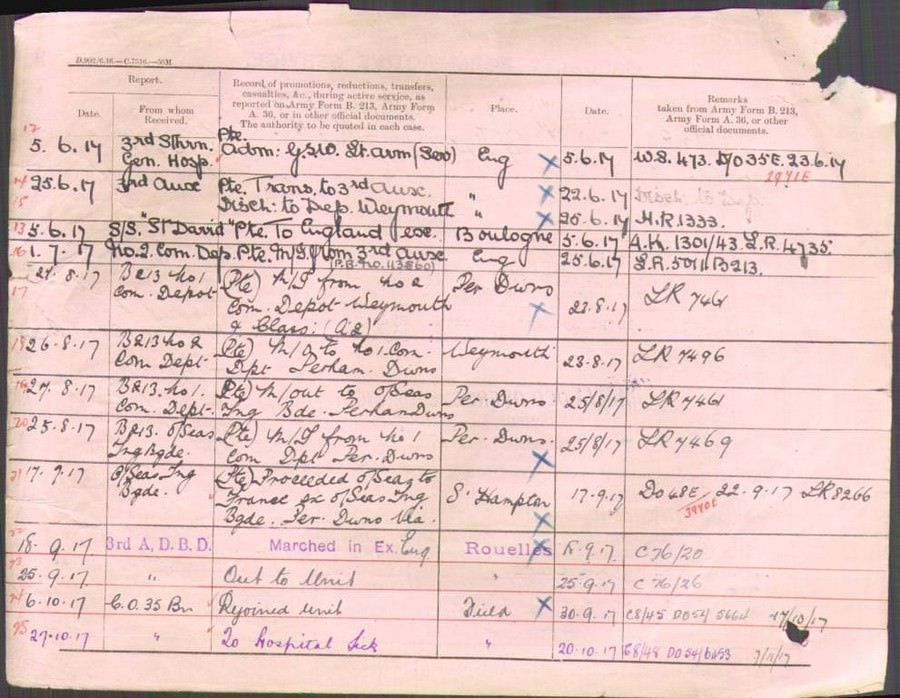 D.902/6.16.—C.7516.—50M.
Report.
Record of promotions, reductions, transfers, casualties, &c., during active service, as reported on Army Form B. 213, Army Form A. 36, or in other official documents. The authority to be quoted in each case.
Place.
Date.
Remarks taken from Army Form B. 213, Army Form A. 36, or other official documents.
Date.
From whom Received.
12
5.6.17 3rd Sthrn. Gen. Hosp. Pte. Adm: G.S.W. Lt. arm (Sev) Eng 5.6.17 W.S. 473. DO35E. 23.6.17
2941E
14 25.6.17 3rd Aux Pte. Trans. to 3rd Aux. " 22.6.17 Disch: to Dep.
15 Disch: to Dep. Weymouth " 25.6.17 H.R1333.
13 5.6.17 S/S. "St David" Pte. To England Boulogne 5.6.17 A.K. 1301/43. L.R. 4735.
16 1.7.17 No.2 Com. Dep. Pte. M/I from 3rd Aux. Eng 25.6.17 L.R. 5011. B213.
17 27.8.17 B213 No 1 Com. Depot (Pte) M/I from No 2 Com. Depot Weymouth & Class: (A2) Per Duns 23.8.17 LR 7461
18 26.8.17 B213 No 2 Com Dept (Pte) M/O to No 1 Com. Dpt Perham. Downs Weymouth 23.8.17 LR 7496
19 27.8.17 B213 No 1. Com. Dept. (Pte) M/out to O/Seas Tng Bde. Perham Duns Per Duns 25/8/17 LR 7461
20 25.8.17 B213. O/Seas Tng Bgde. (Pte) M/I from No 1 Com Dpt Per. Duns Per. Duns. 25/8/17 LR 7469
21 17.9.17 O/Seas Tng Bgde. (Pte) Proceeded O/Seas to France ex O/Seas Tng Bgde. Per. Duns Via. S' Hampton 17.9.17 Do 48E. 22.9.17 LR8266
3940E
22
18.9.17 3rd A. D. B. D. Marched in Ex. Eng Rouelles 18.9.17 C 76/20
23
25.9.17 " Out to Unit " 25.9.17 C 76/26
24 6.10.17 C.O. 35 Bn Rejoined Unit Field 30.9.17 C8/45 DO54/ 17/10/17
25 27.10.17 " To Hospital Sick " 20.10.17 C8/48